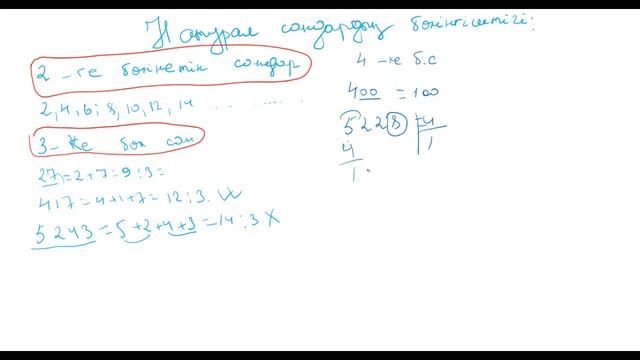 Натурал сандардың бөлінгіштігі:
2-ге бөлінетін сандар
2, 4, 6, 8, 10, 12, 14 ...........
3-ке бөл сан
27=2+7=9:3=
417=4+1+7=12:3. V
5243=5+2+4+3=14:3 X
4-ке б.с
400=100
5228 4
4 1
1